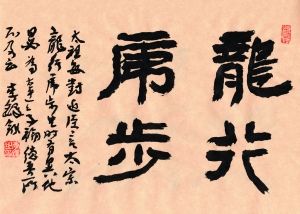 龍行
虎步
太祖每對近臣言太宗
龍行虎步生時有異他
日必為太平天子福德吾所
不及云 李